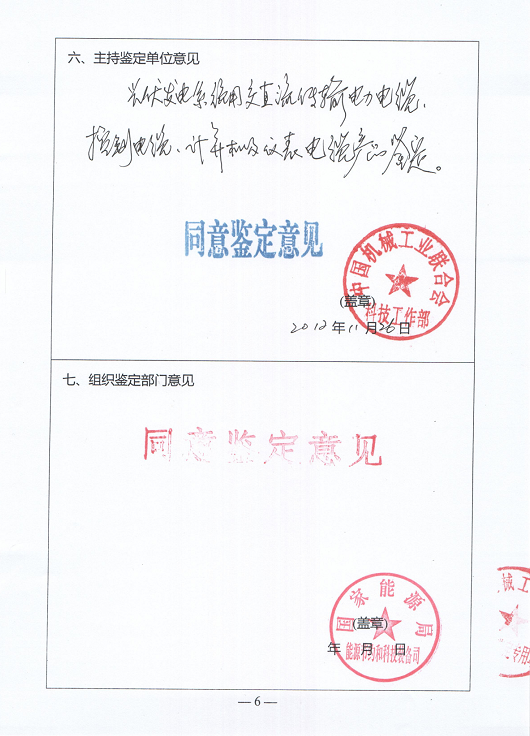 六、主持鉴定单位意见
光伏发电系统用交直流传输电力电缆、
控制电缆、计算机及仪表电缆产品鉴定。
同意鉴定意见
中国机械工业联合会
(盖章)
科技工作部
2012年11月26日
七、组织鉴定部门意见
同意鉴定意见
国家能源局
(盖章)
年 月 日
能源节约和科技装备司
械工
专用
— 6 —